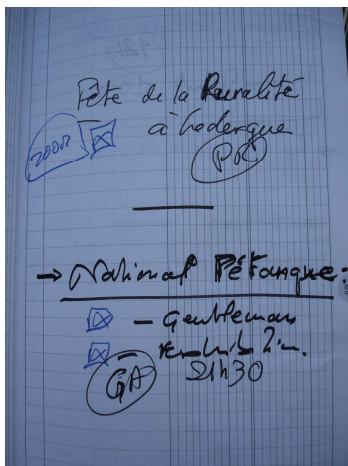 Fête de la Ruralité
à Ledergue
2000
PR
→ National Pétanque
- Gentleman
21h30
GA